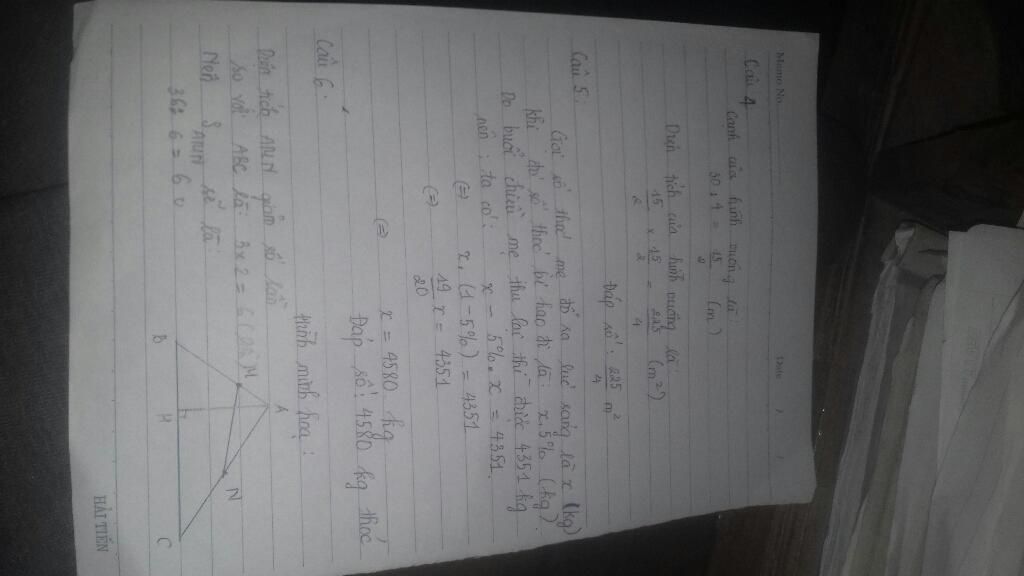 Memo No.
Date / /
Câu 4
Cạnh của hình vuông là:
30 : 4 = 15/2 (m)
Diện tích của hình vuông là:
15/2 x 15/2 = 225/4 (m²)
Đáp số: 225/4 m²
Câu 5:
Gọi số thóc mẹ đổ ra lúc sáng là x (kg)
Khi đó số thóc bị hao đi là: x.5% (kg)
Do buổi chiều mẹ thu lại thì được 4351 kg
nên ta có: x - 5%.x = 4351
(=) x.(1-5%) = 4351
(=) 19/20 x = 4351
(=) x = 4580 kg
Đáp số: 4580 kg thóc
Câu 6:
Hình minh hoạ:
Diện tích AMN gồm số lần
so với ABC là: 3x2 = 6 (lần)
Nên S AMN sẽ là:
36: 6 = 6
A
M
N
B
H
C
HẢI TIẾN